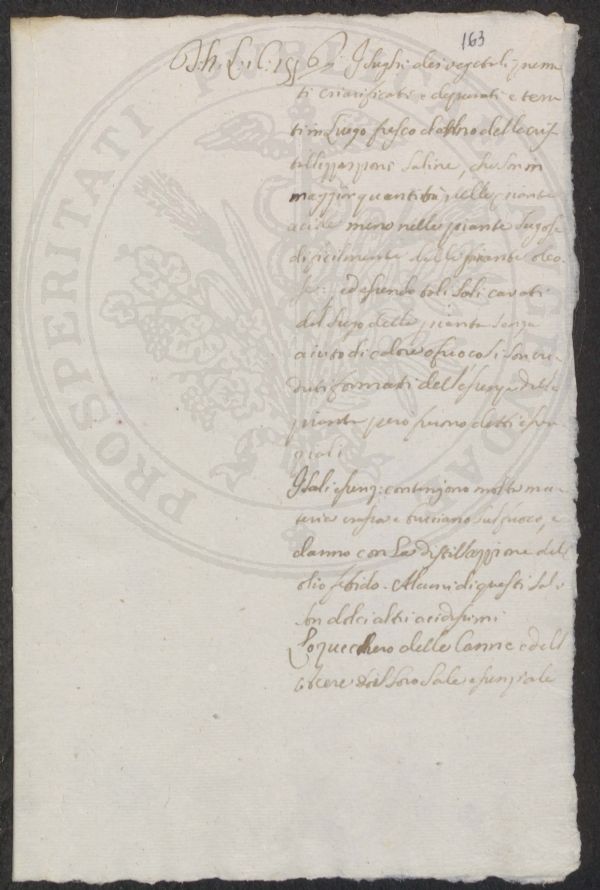 163
I sughi dei vegetabili premu
ti chiarificati e depurati e tenu
ti in Luogo fresco danno delle cris
tallizzazioni Saline, che son in
maggior quantità nelle piante
acide meno nelle piante sugose
dificilmente dalle piante oleo
se: ed essendo tali Sali cavati
dal sugo delle piante senza
aiuto di calore o fuoco si son cre
duti formati dell'essenza delle
piante pero furono detti essen
ziali
I Sali essenz: contengono molta ma
teria crassa e bruciano sul fuoco, e
danno con La distillazzione dell
olio fetido. Alcuni di questi sal
son dolci altri acidissimi
Lo zucchero delle Canne e dell
Acere è il loro Sale essenziale
PROSPERITATI PUBLICAE AUGENDAE